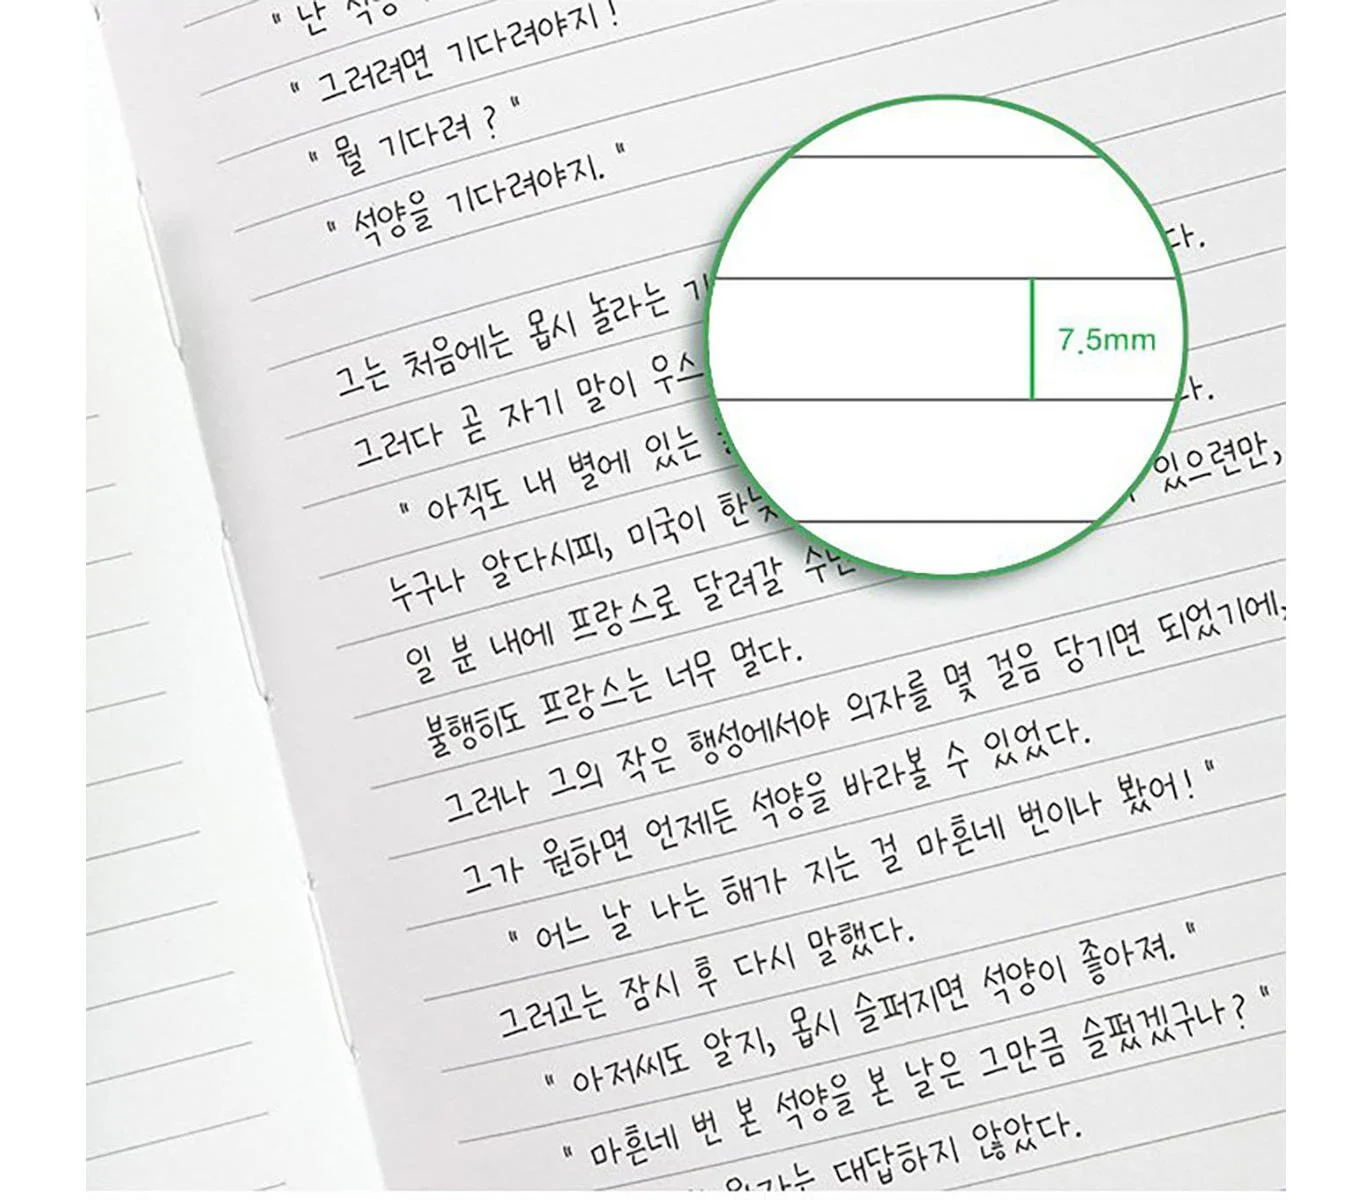 " 난
" 그러려면 기다려야지!
" 뭘 기다려? "
" 석양을 기다려야지. "
그는 처음에는 몹시 놀라는
그러다 곧 자기 말이
" 아직도 내 별에 있는
누구나 알다시피, 미국이 있으련만,
일 분 내에 프랑스로 달려갈
불행히도 프랑스는 너무 멀다.
그러나 그의 작은 행성에서야 의자를 몇 걸음 당기면 되었기에,
그가 원하면 언제든 석양을 바라볼 수 있었다.
" 어느 날 나는 해가 지는 걸 마흔네 번이나 봤어! "
그러고는 잠시 후 다시 말했다.
" 아저씨도 알지, 몹시 슬퍼지면 석양이 좋아져. "
" 마흔네 번 본 석양을 본 날은 그만큼 슬펐겠구나? "
대답하지 않았다.
7.5mm